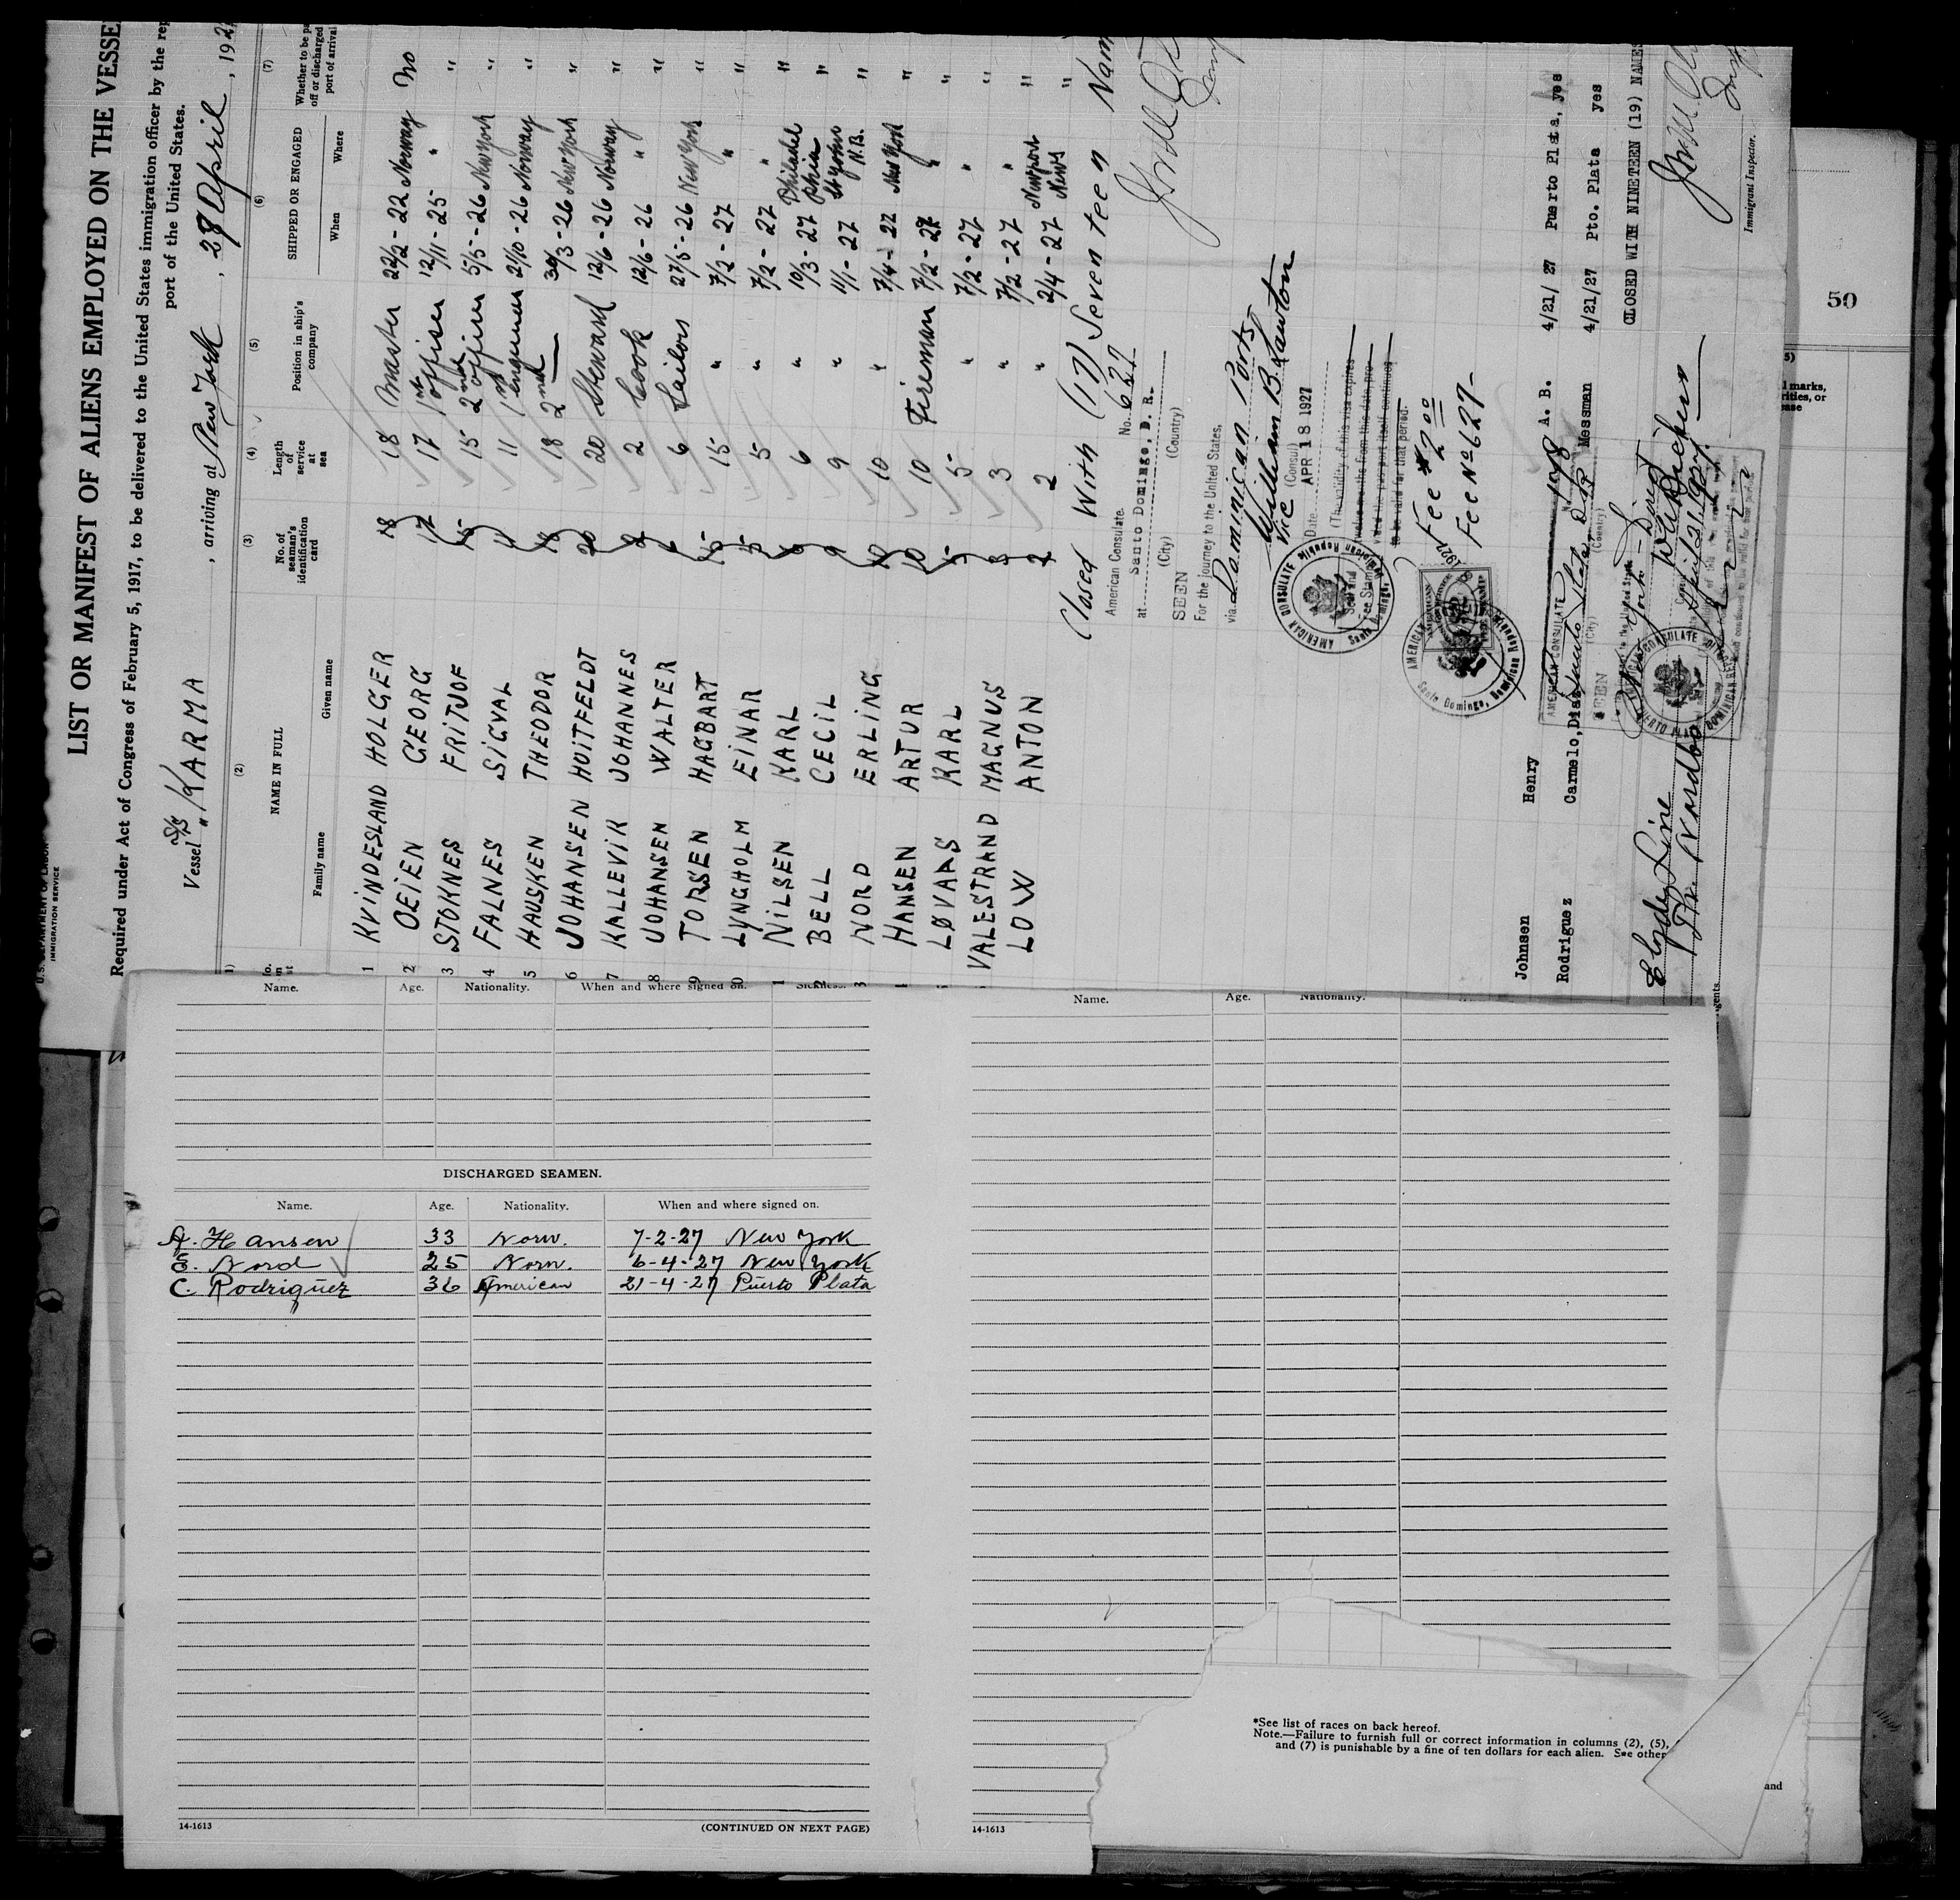 U.S. DEPARTMENT OF LABOR
IMMIGRATION SERVICE
LIST OR MANIFEST OF ALIENS EMPLOYED ON THE VESSE
Required under Act of Congress of February 5, 1917, to be delivered to the United States immigration officer by the rep
port of the United States.
Vessel S/S "KARMA , arriving at New York , 28 April , 192
(2) (3) (4) (5) (6) (7)
NAME IN FULL
Family name Given name
No. of seaman's identification card
Length of service at sea
Position in ship's company
SHIPPED OR ENGAGED
When Where
Whether to be pa
off or discharged
port of arrival
1 KVINDESLAND HOLGER 18 18 Master 22/2-22 Norway No
2 OEIEN GEORG 17 17 1st officer 12/11-25 " "
3 STOKNES FRITJOF 15 15 2nd officer 5/5-26 New York "
4 FALNES SIGVAL 11 11 1st engineer 2/10-26 Norway "
5 HAUSKEN THEODOR 18 18 2nd — 30/3-26 New York "
6 JOHANSEN HUITFELDT 20 20 Steward 12/6-26 Norway "
7 KALLEVIK JOHANNES 2 2 Cook 12/6-26 " "
8 JOHANSEN WALTER 6 6 Sailors 27/5-26 New York "
9 TORSEN HAGBART 15 15 " 7/2-27 " "
0 LYNGHOLM EINAR 5 5 " 7/2-27 " "
1 NILSEN KARL 6 6 " 10/3-27 Philadelphia "
2 BELL CECIL 9 9 " 4/1-27 N.B. "
3 NORD ERLING 10 10 " 7/4-27 New York "
HANSEN ARTUR 10 10 Fireman 7/2-27 " "
LØVAAS KARL 5 5 " 7/2-27 " "
VALESTRAND MAGNUS 3 3 " 7/2-27 " "
LOW ANTON 2 2 " 2/4-27 Newport News "
Closed With (17) Seventeen Nam
American Consulate. No. 627
at Santo Domingo, D. R.
(City) (Country)
SEEN
For the journey to the United States,
via Dominican Ports
William B. Lawton
Vice (Consul)
Date APR 18 1927
(The validity of this visa expires
to be valid for that period.
AMERICAN CONSULATE
Santo Domingo, Dominican Republic
Fee Stamp
Fee $2.00
Fee No 627-
Johnsen Henry A. B. 4/21/27 Puerto Plata, yes
Rodriguez Carmelo, Messman 4/21/27 Pto. Plata yes
CLOSED WITH NINETEEN (19) NAMES
AMERICAN CONSULATE
(City) (Country)
SEEN
April 21, 1927
Clyde Line
Immigrant Inspector.
50
Name. Age. Nationality. When and where signed on.
DISCHARGED SEAMEN.
Name. Age. Nationality. When and where signed on.
A. Hansen 33 Norw. 7-2-27 New York
E. Nord 25 Norw. 6-4-27 New York
C. Rodriguez 36 American 21-4-27 Puerto Plata
14-1613 (CONTINUED ON NEXT PAGE)
Name. Age. Nationality.
14-1613
*See list of races on back hereof.
Note.—Failure to furnish full or correct information in columns (2), (5),
and (7) is punishable by a fine of ten dollars for each alien. See other
and